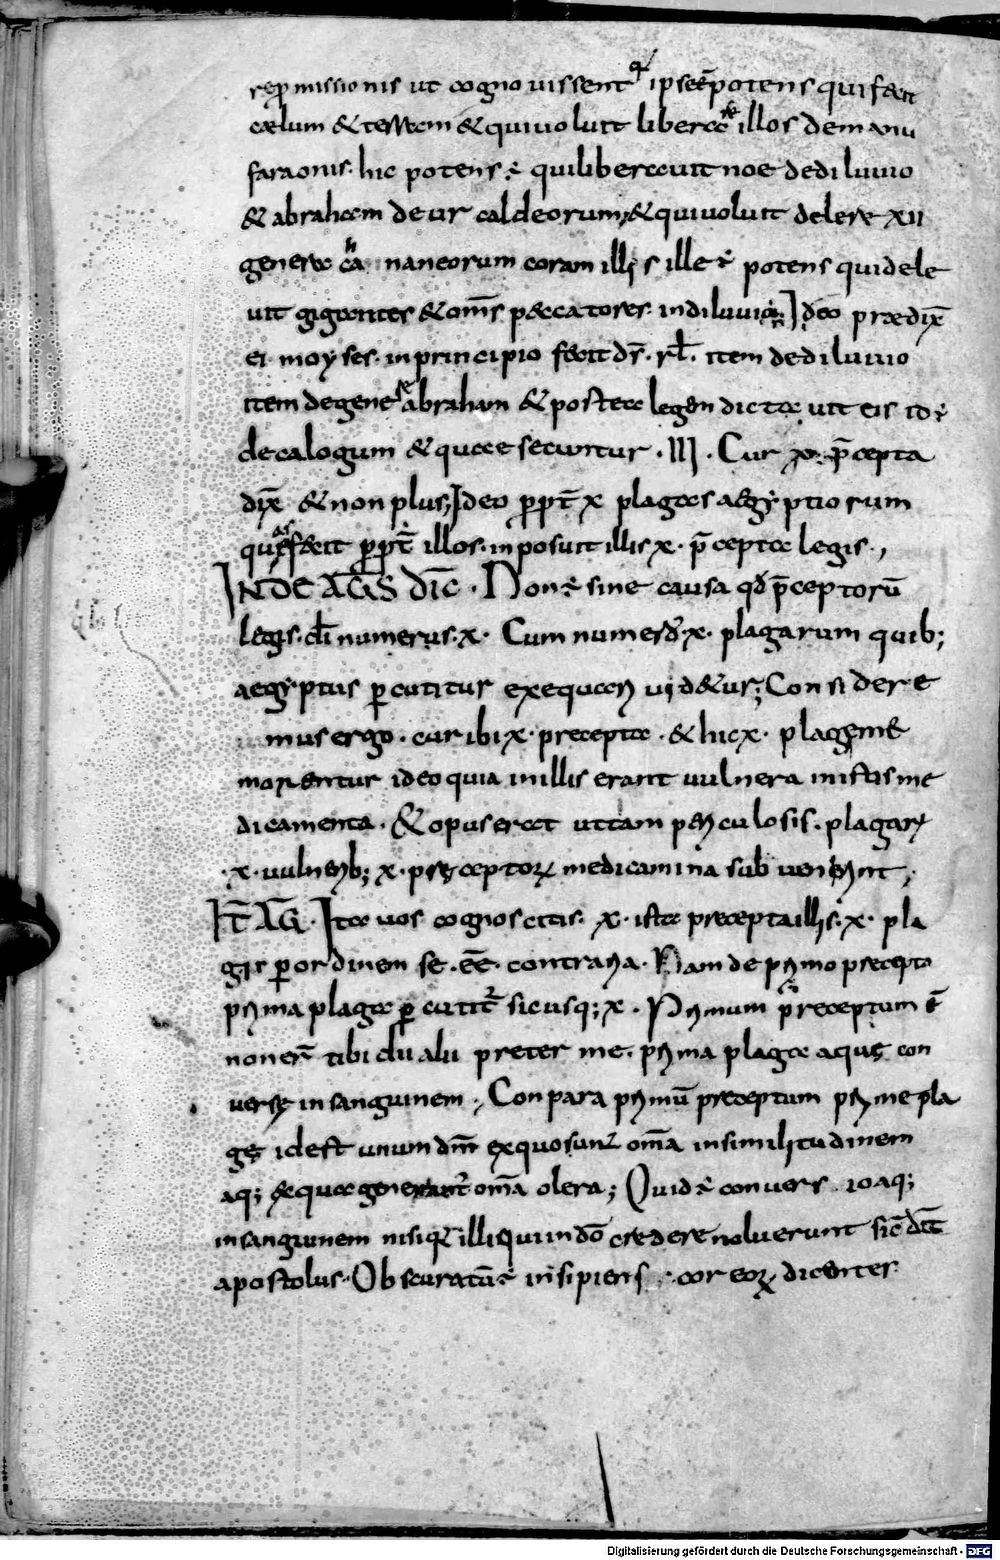 repromissionis ut cognovissent qđ ipse ē potens qui fecit
cælum & terram & qui voluit liberare illos de manu
faraonis. hic potens ē qui liberavit noe de diluvio
& abraham de ur caldeorum, & qui voluit delere XII
genera channaneorum coram illis ille ē potens qui dele
vit gigantes & om̄s peccatores in diluvio. Ideo prædix̄
ei moyses. in principio fecit d̄s. rl̄. item de diluvio
item de genere abraham & postea legem dictavit eis id ē
decalogum & quae secuntur. III. Cur x. p̄cepta
dix̄ & non plus; Ideo propt̄ x plagas aegyptiorum
quas fecit propt̄ illos. inposuit illis x. p̄cepta legis.,
INDE AGS DIC. Non ē sine causa qđ p̄ceptorū
legis. dī numerus. x. Cum numero. x. plagarum quib;
aegyptus p cutitur exequari videtur; Considere
mus ergo. cur ibi x. precepta. & hic x. plage me
morentur ideo quia in illis erant vulnera in istis me
dicamenta. & opus erat ut tam periculosis. plagarum
.x. vulnerib; x. preceptorum medicamina subvenirent;
IT AG. Ita vos cognoscitis. x. ista precepta illis. x. pla
gis p ordinem se. eē. contraria. Nam de primo precepto
prima plaga p cutit̄ sic usq; x. Primum preceptum ē
non er̄ tibi dii alii preter me. prima plaga aquę con
versę in sanguinem., Conpara primū preceptum prime pla
gę idest unum dm̄ ex quo sunt om̄a in similitudinem
aq; ex qua generant̄ om̄a olera; Quid ē convers.. io aq;
in sanguinem nisi q illi qui in dō credere noluerunt sic dīc
apostolus. Obscuratū ē insipiens. cor eorum dicentes
Digitalisierung gefördert durch die Deutsche Forschungsgemeinschaft - DFG